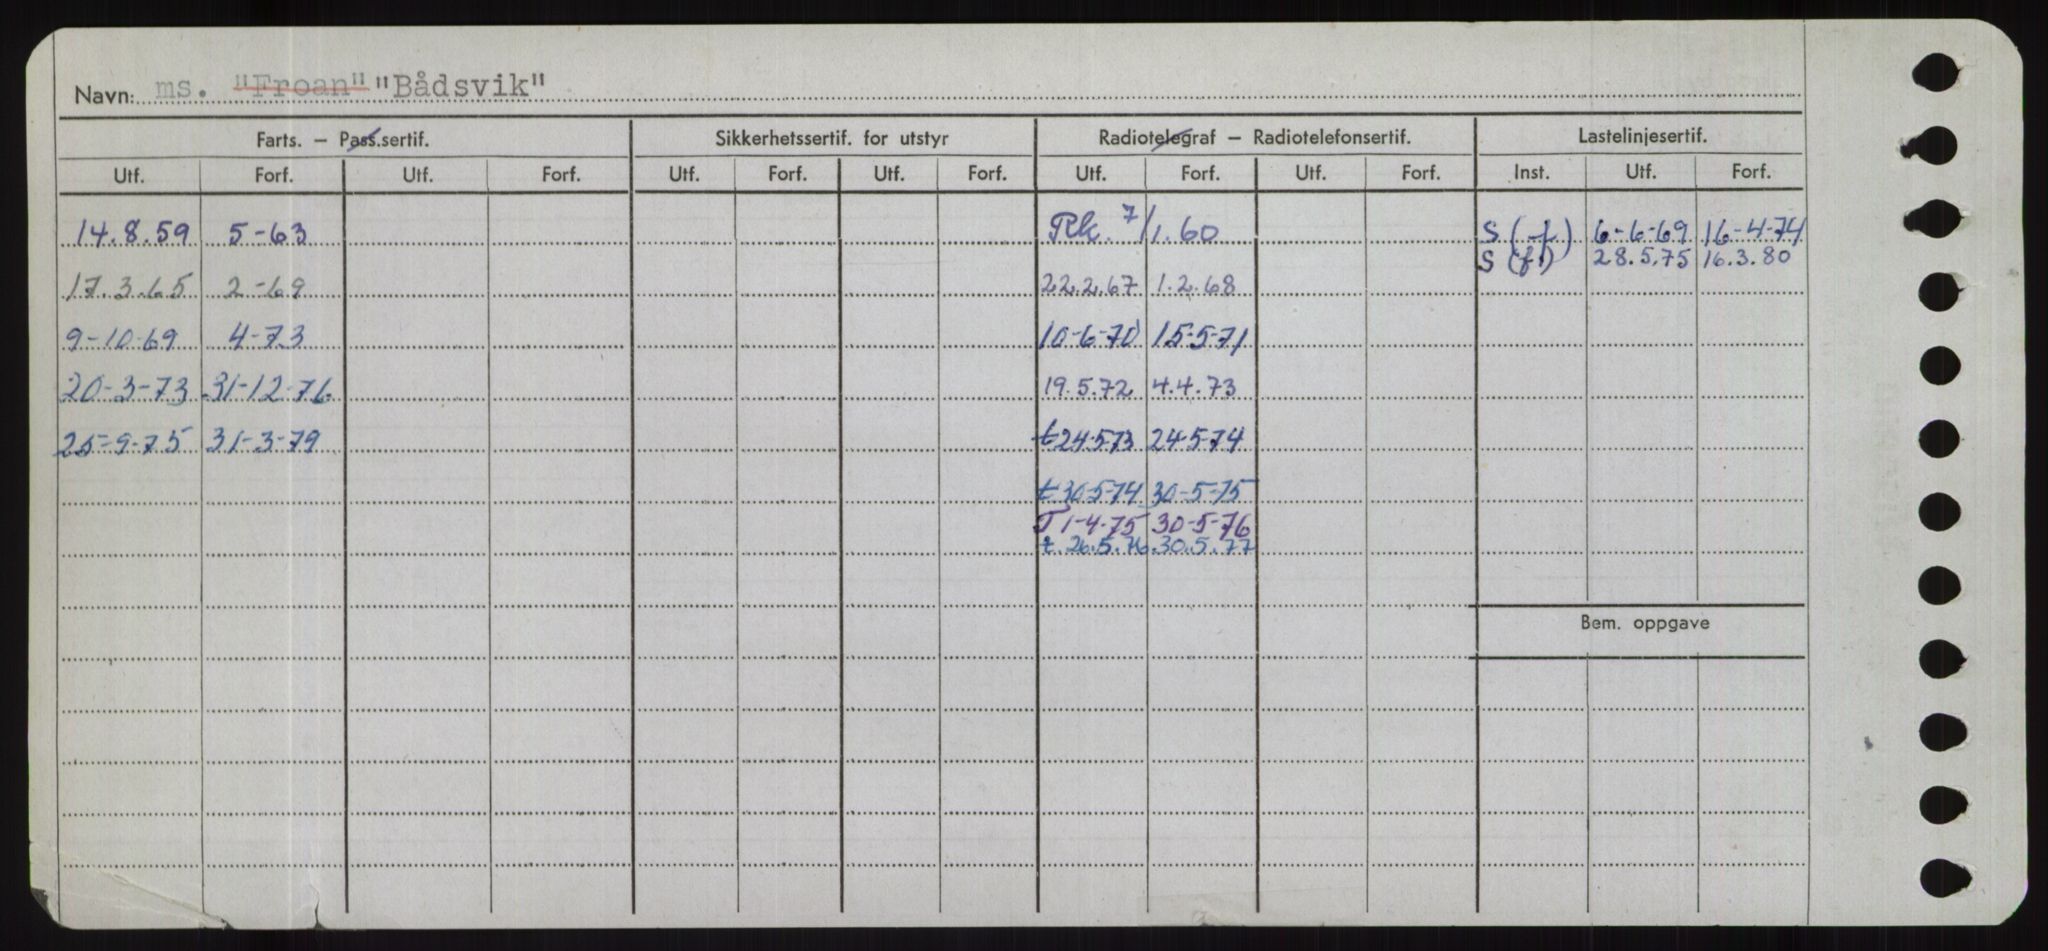 Navn: ms. "Froan" "Bådsvik"
Farts. — Pass.sertif. Sikkerhetssertif. for utstyr Radiotelegraf — Radiotelefonsertif. Lastelinjesertif.
Utf. Forf. Utf. Forf. Utf. Forf. Utf. Forf. Utf. Forf. Utf. Forf. Inst. Utf. Forf.
14.8.59 5-63 Rk. 7/1.60 S (f) 6-6-69 16-4-74
S (f) 28.5.75 16.3.80
17.3.65 2-69 22.2.67 1.2.68
9-10-69 4-73 10-6-70 15-5-71
20-3-73 31-12-76 19.5.72 4.4.73
25-9-75 31-3-79 t 24-5-73 24-5-74
t 30-5-74 30-5-75
T 1-4-75 30-5-76
t. 26.5.76 30.5.77
Bem. oppgave